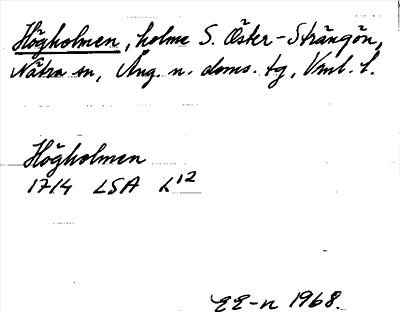 Högholmen, holme S. Öster-Strängön,
Nätra sn, Ång. n. doms. tg, Vnrl. l.
Högholmen
1714 LSA L¹²
EE-n 1968.